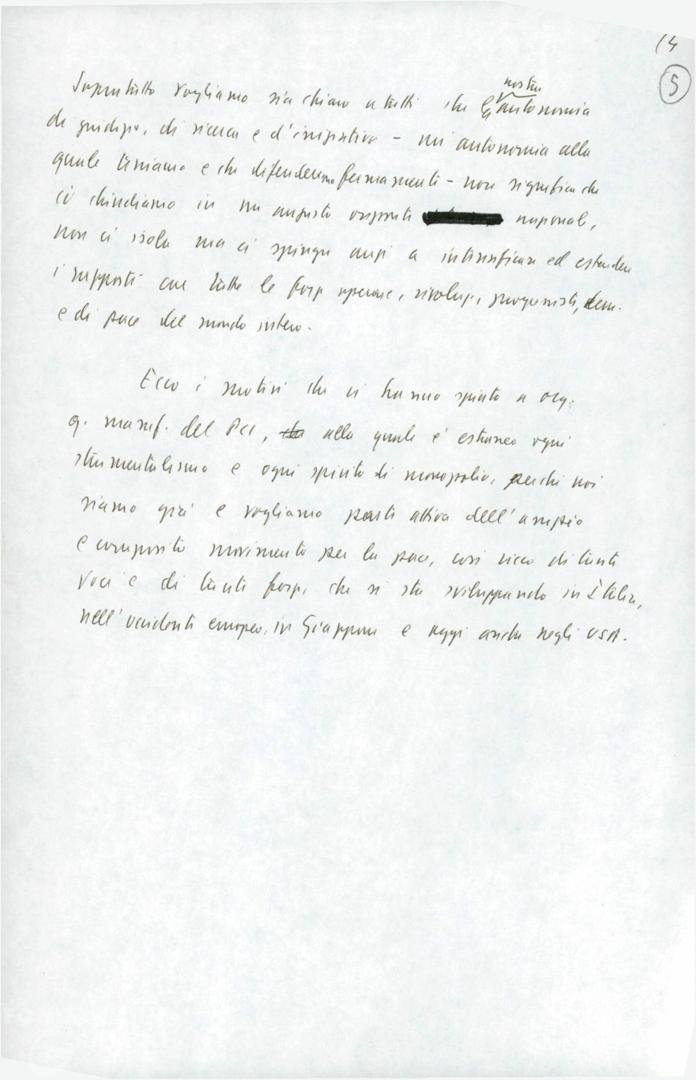 14
5
Soprattutto vogliamo sia chiaro a tutti che la nostra autonomia
di giudizio, di ricerca e d'iniziativa – un'autonomia alla
quale teniamo e che difenderemo fermamente – non significa che
ci chiudiamo in un angusto orizzonte nazionale,
non ci isola ma ci spinge anzi a intensificare ed estendere
i rapporti con tutte le forze operaie, rivoluz., progressiste, dem.
e di pace del mondo intero.
Ecco i motivi che ci hanno spinto a org.
q. manif. del PCI, alla quale è estraneo ogni
strumentalismo e ogni spirito di monopolio, perché noi
siamo già e vogliamo parte attiva dell'ampio
e composito movimento per la pace, così ricco di tante
voci e di tante forze, che si sta sviluppando in Italia,
nell'occidente europeo, in Giappone e oggi anche negli USA.